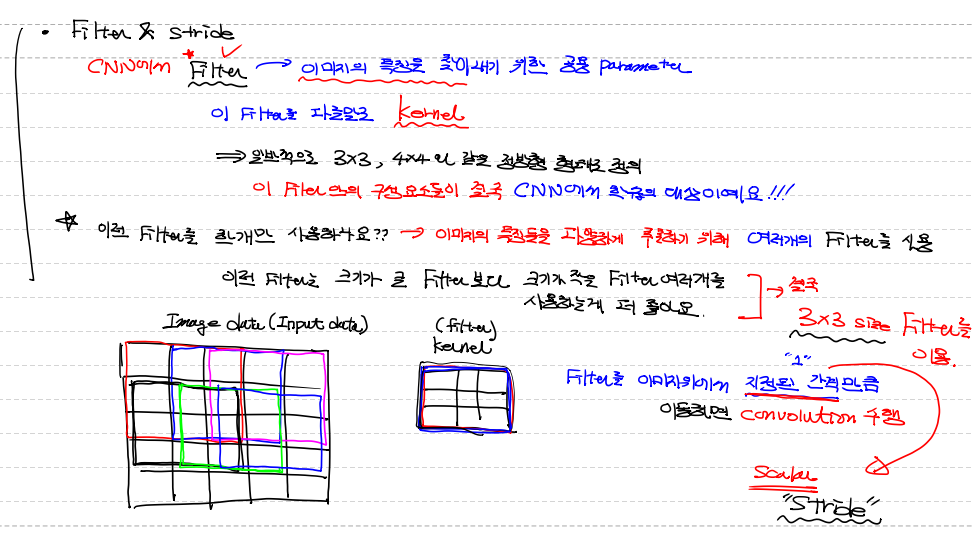 • Filter & stride
CNN에서 * Filter → 이미지의 특징을 찾아내기 위한 공용 parameter
이 Filter를 다른말로 kernel
⇒ 일반적으로 3x3, 4x4 와 같은 정방형 형태로 정의
이 Filter안의 구성요소들이 결국 CNN에서 학습의 대상이예요!!!
☆ 이런 Filter를 한개만 사용하나요?? → 이미지의 특징들을 다양하게 추출하기 위해 여러개의 Filter를 사용
이런 Filter는 크기가 큰 Filter보다 크기가 작은 Filter 여러개를
사용하는게 더 좋아요.
→ 결국
3x3 size Filter를
이용.
Image data (Input data)
(filter)
kernel
"1"
Filter를 이미지위에서 지정된 간격만큼
이동하면 convolution 수행
Scalar
"Stride"